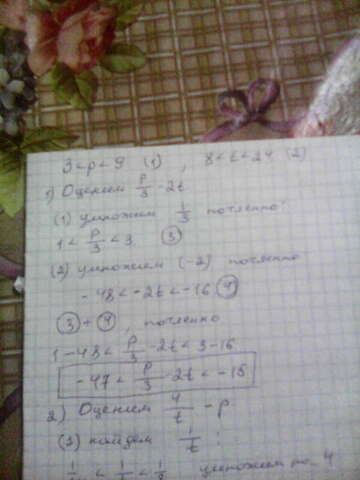 3 < p < 9 (1) , 8 < t < 24 (2)
1) Оценим p/3 - 2t
(1) умножим 1/3 почленно:
1 < p/3 < 3 (3)
(2) умножим (-2) почленно
- 48 < -2t < -16 (4)
(3) + (4) , почленно
1 - 48 < p/3 - 2t < 3 - 16
- 47 < p/3 - 2t < -13
2) Оценим 4/t - p
(2) найдем 1/t :
< 1/t < 1/8 умножим на 4